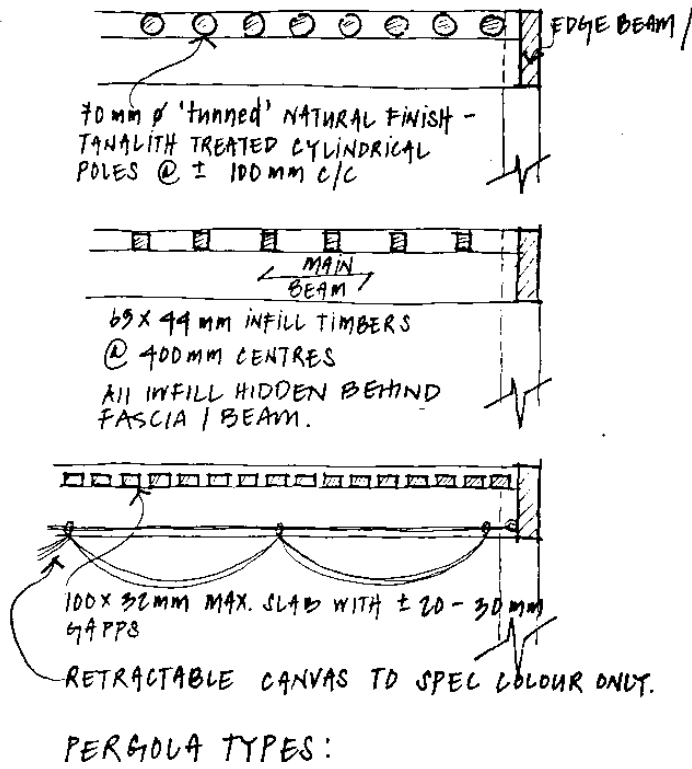 EDGE BEAM /
70 mm ø 'tunned' NATURAL FINISH -
TANALITH TREATED CYLINDRICAL
POLES @ ± 100 mm C/C
MAIN
BEAM
69 x 44 mm INFILL TIMBERS
@ 400 mm CENTRES
All INFILL HIDDEN BEHIND
FASCIA / BEAM.
100 x 32mm MAX. SLAB WITH ± 20 - 30 mm
GAPPS
RETRACTABLE CANVAS TO SPEC COLOUR ONLY.
PERGOLA TYPES: